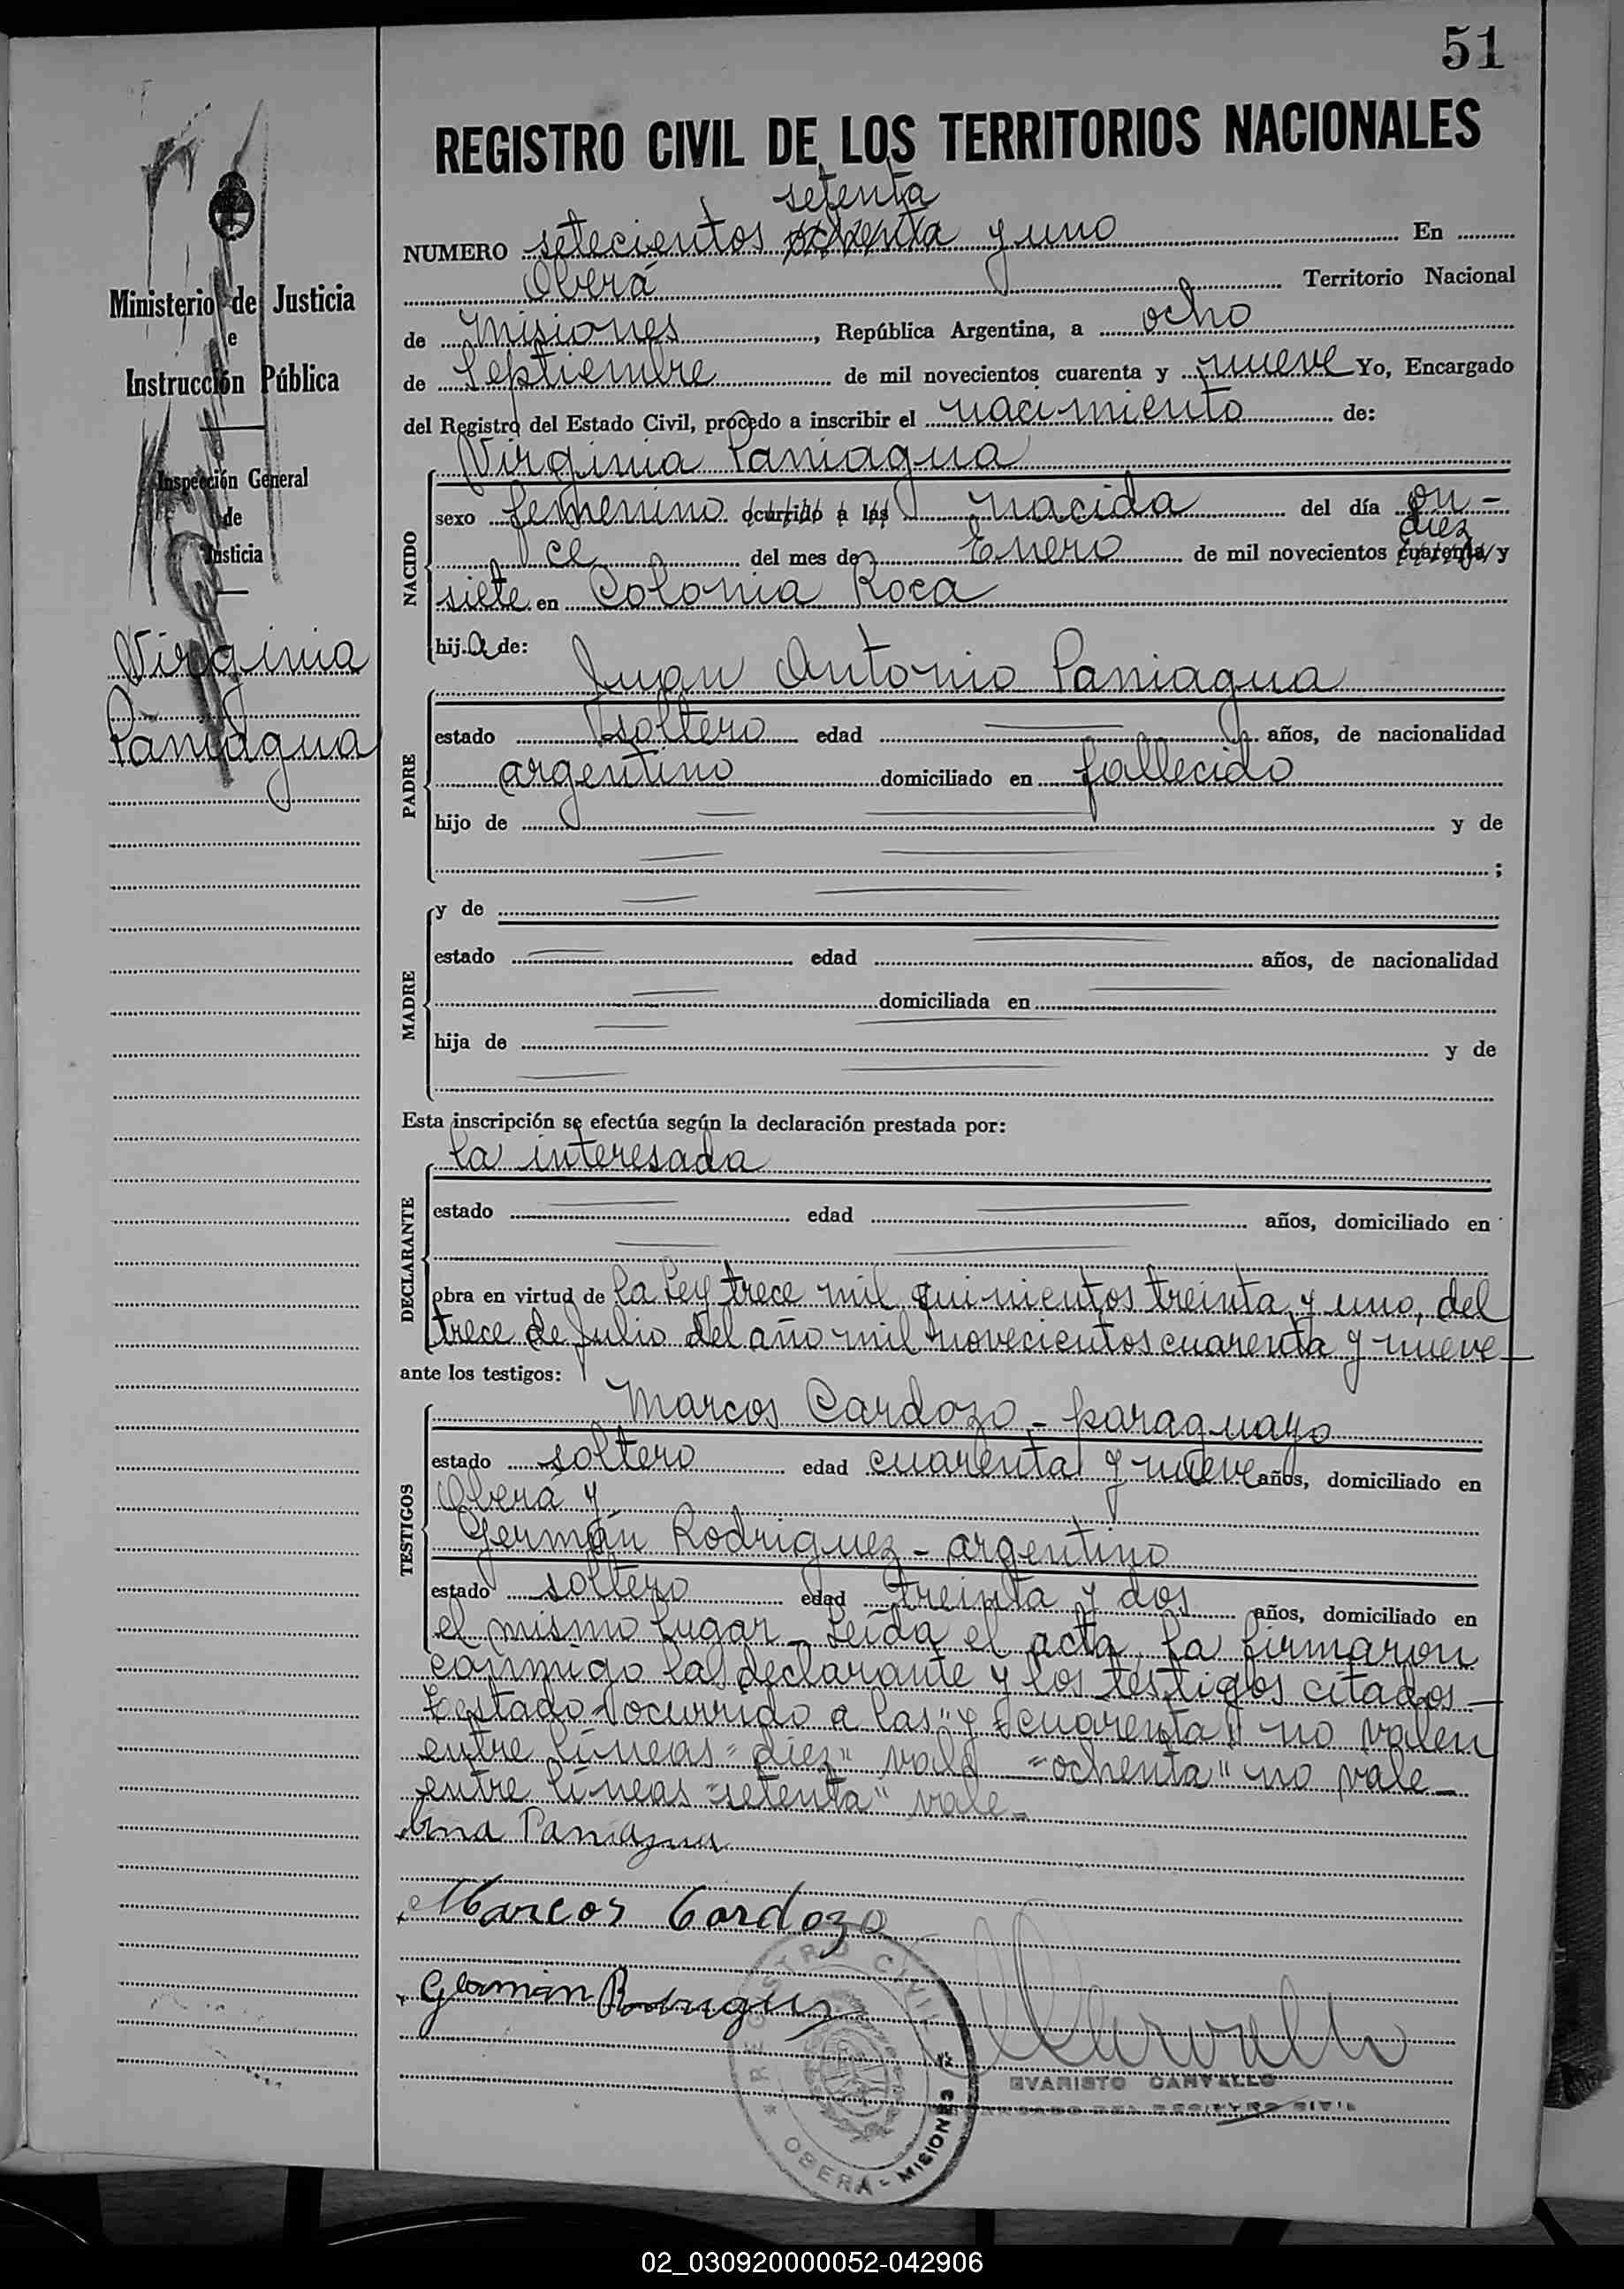 51
REGISTRO CIVIL DE LOS TERRITORIOS NACIONALES
setenta
NUMERO setecientos ochenta y uno En
Oberá Territorio Nacional
de Misiones, República Argentina, a ocho
de Septiembre de mil novecientos cuarenta y nueve Yo, Encargado
del Registro del Estado Civil, procedo a inscribir el nacimiento de:
Virginia Paniagua
NACIDO
sexo femenino ocurrido a las nacida del día on-
diez
ce del mes de Enero de mil novecientos cuarenta y
siete en Colonia Roca
hij.a de:
Juan Antonio Paniagua
PADRE
estado soltero edad años, de nacionalidad
argentino domiciliado en fallecido
hijo de y de
;
MADRE
y de
estado edad años, de nacionalidad
domiciliada en
hija de y de
Esta inscripción se efectúa según la declaración prestada por:
la interesada
DECLARANTE
estado edad años, domiciliado en
obra en virtud de la Ley trece mil quinientos treinta y uno, del
trece de Julio del año mil novecientos cuarenta y nueve
ante los testigos:
Marcos Cardozo - paraguayo
TESTIGOS
estado soltero edad cuarenta y nueve años, domiciliado en
Oberá y
Germán Rodriguez - argentino
estado soltero edad treinta y dos años, domiciliado en
el mismo lugar - Leída el acta, la firmaron
conmigo la declarante y los testigos citados -
Testado "ocurrido a las" y "cuarenta" no valen
entre líneas "diez" vale "ochenta" no vale -
entre líneas "setenta" vale -
Paniagua
Marcos Cardozo
German Rodriguez
REGISTRO CIVIL
OBERÁ - MISIONES
EVARISTO CARVALLO
ENCARGADO DEL REGISTRO CIVIL
Ministerio de Justicia
e
Instrucción Pública
Inspección General
de
Justicia
Virginia
Paniagua
02_030920000052-042906